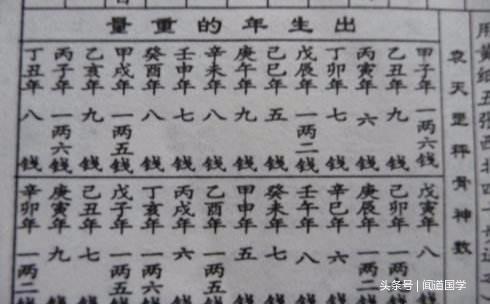 用黄纸五张西北四十
袁天罡秤骨神数
出生年的重量
甲子年 一两六钱
乙丑年 九钱
丙寅年 六钱
丁卯年 七钱
戊辰年 一两二钱
己巳年 五钱
庚午年 九钱
辛未年 八钱
壬申年 七钱
癸酉年 八钱
甲戌年 一两五钱
乙亥年 九钱
丙子年 一两六钱
丁丑年 八钱
戊寅年 八
己卯年 一两
庚辰年 一两二
辛巳年 六
壬午年 八
癸未年 七
甲申年 五
乙酉年 一两五
丙戌年 六
丁亥年 一两六
戊子年 一两五
己丑年 七
庚寅年 九
辛卯年 一两二
头条号 | 闻道国学